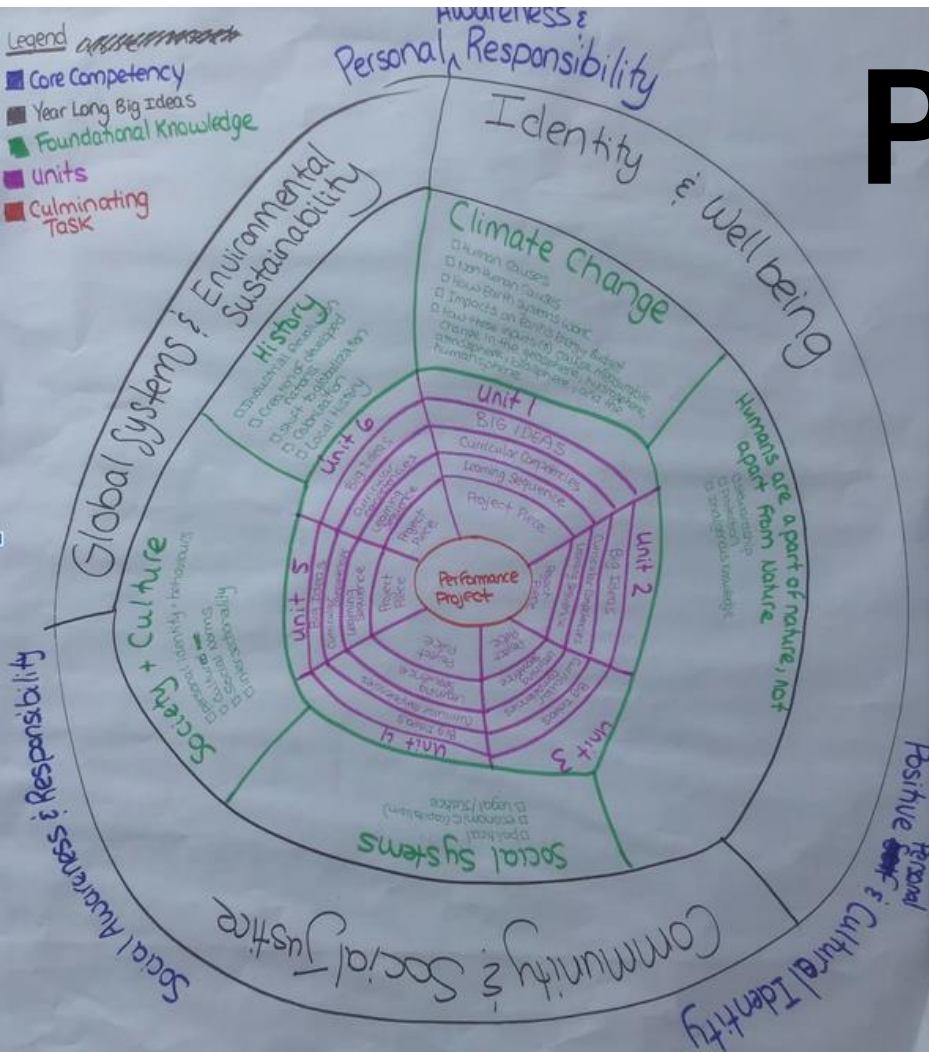 Legend
Core Competency
Year Long Big Ideas
Foundational Knowledge
Units
Culminating
Task
P
Awareness &
Personal Responsibility
Identity & Wellbeing
Global Systems & Environmental
Sustainability
Community & Social Justice
Positive Personal
& Cultural Identity
Social Awareness & Responsibility
Climate Change
Human Causes
Non Human Causes
How Earth Systems work
Impacts on Earth's Energy Budget
How these inputs cause measurable
change in the geosphere, hydrosphere,
atmosphere, biosphere, and the
humansphere
Humans are a part of nature, not
apart from Nature
Stewardship
Indigenous Knowledge
Social Systems
political
economic (capitalism)
Legal/Justice
Society + Culture
personal identity + behaviours
Cultures
Social Norms
Intersectionality
History
Industrial Revolution
Creation of developed
nations
Shift to globalization
Colonization
Local History
Unit 1
BIG IDEAS
Curricular Competencies
Learning Sequence
Project Piece
Unit 2
Big Ideas
Curricular Competencies
Learning Sequence
Project
Piece
Unit 3
Big Ideas
Curricular
Competencies
Learning
Sequence
Project
Piece
Unit 4
Big Ideas
Curricular Competencies
Learning
Sequence
Project
Piece
Unit 5
Big Ideas
Curricular
Competencies
Learning
Sequence
Project
Piece
Unit 6
Big Ideas
Curricular
Competencies
Learning
Sequence
Project
Piece
Performance
Project